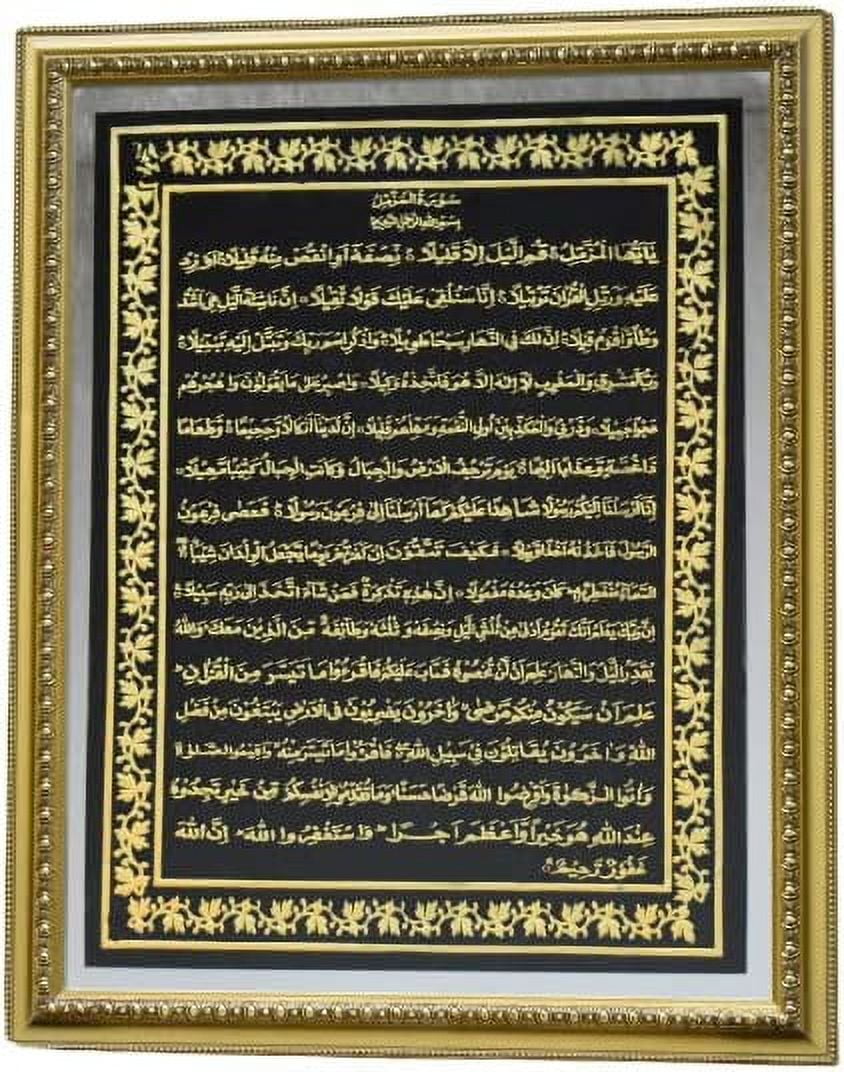 سورة المزمل
بسم الله الرحمن الرحيم
يٰٓاَيُّهَا الْمُزَّمِّلُ ۙ قُمِ الَّيْلَ اِلَّا قَلِيْلًا ۙ نِّصْفَهٗٓ اَوِ انْقُصْ مِنْهُ قَلِيْلًا ۙ اَوْ زِدْ
عَلَيْهِ وَرَتِّلِ الْقُرْاٰنَ تَرْتِيْلًا ۙ اِنَّا سَنُلْقِيْ عَلَيْكَ قَوْلًا ثَقِيْلًا ۙ اِنَّ نَاشِئَةَ الَّيْلِ هِيَ اَشَدُّ
وَطْاً وَّاَقْوَمُ قِيْلًا ۙ اِنَّ لَكَ فِي النَّهَارِ سَبْحًا طَوِيْلًا ۙ وَاذْكُرِ اسْمَ رَبِّكَ وَتَبَتَّلْ اِلَيْهِ تَبْتِيْلًا ۙ
رَبُّ الْمَشْرِقِ وَالْمَغْرِبِ لَآ اِلٰهَ اِلَّا هُوَ فَاتَّخِذْهُ وَكِيْلًا ۙ وَاصْبِرْ عَلٰى مَا يَقُوْلُوْنَ وَاهْجُرْهُمْ
هَجْرًا جَمِيْلًا ۙ وَذَرْنِيْ وَالْمُكَذِّبِيْنَ اُولِي النَّعْمَةِ وَمَهِّلْهُمْ قَلِيْلًا ۙ اِنَّ لَدَيْنَآ اَنْكَالًا وَّجَحِيْمًا ۙ وَّطَعَامًا
ذَا غُصَّةٍ وَّعَذَابًا اَلِيْمًا ۙ يَوْمَ تَرْجُفُ الْاَرْضُ وَالْجِبَالُ وَكَانَتِ الْجِبَالُ كَثِيْبًا مَّهِيْلًا ۙ
اِنَّآ اَرْسَلْنَآ اِلَيْكُمْ رَسُوْلًا شَاهِدًا عَلَيْكُمْ كَمَآ اَرْسَلْنَآ اِلٰى فِرْعَوْنَ رَسُوْلًا ۙ فَعَصٰى فِرْعَوْنُ
الرَّسُوْلَ فَاَخَذْنٰهُ اَخْذًا وَّبِيْلًا ۙ فَكَيْفَ تَتَّقُوْنَ اِنْ كَفَرْتُمْ يَوْمًا يَّجْعَلُ الْوِلْدَانَ شِيْبًا ۙ
السَّمَآءُ مُنْفَطِرٌ بِهٖ كَانَ وَعْدُهٗ مَفْعُوْلًا ۙ اِنَّ هٰذِهٖ تَذْكِرَةٌ فَمَنْ شَآءَ اتَّخَذَ اِلٰى رَبِّهٖ سَبِيْلًا ۙ
اِنَّ رَبَّكَ يَعْلَمُ اَنَّكَ تَقُوْمُ اَدْنٰى مِنْ ثُلُثَيِ الَّيْلِ وَنِصْفَهٗ وَثُلُثَهٗ وَطَآئِفَةٌ مِّنَ الَّذِيْنَ مَعَكَ وَاللّٰهُ
يُقَدِّرُ الَّيْلَ وَالنَّهَارَ عَلِمَ اَنْ لَّنْ تُحْصُوْهُ فَتَابَ عَلَيْكُمْ فَاقْرَءُوْا مَا تَيَسَّرَ مِنَ الْقُرْاٰنِ
عَلِمَ اَنْ سَيَكُوْنُ مِنْكُمْ مَّرْضٰى وَاٰخَرُوْنَ يَضْرِبُوْنَ فِي الْاَرْضِ يَبْتَغُوْنَ مِنْ فَضْلِ
اللّٰهِ وَاٰخَرُوْنَ يُقَاتِلُوْنَ فِيْ سَبِيْلِ اللّٰهِ فَاقْرَءُوْا مَا تَيَسَّرَ مِنْهُ وَاَقِيْمُوا الصَّلٰوةَ
وَاٰتُوا الزَّكٰوةَ وَاَقْرِضُوا اللّٰهَ قَرْضًا حَسَنًا وَمَا تُقَدِّمُوْا لِاَنْفُسِكُمْ مِّنْ خَيْرٍ تَجِدُوْهُ
عِنْدَ اللّٰهِ هُوَ خَيْرًا وَّاَعْظَمَ اَجْرًا وَاسْتَغْفِرُوا اللّٰهَ اِنَّ اللّٰهَ
غَفُوْرٌ رَّحِيْمٌ